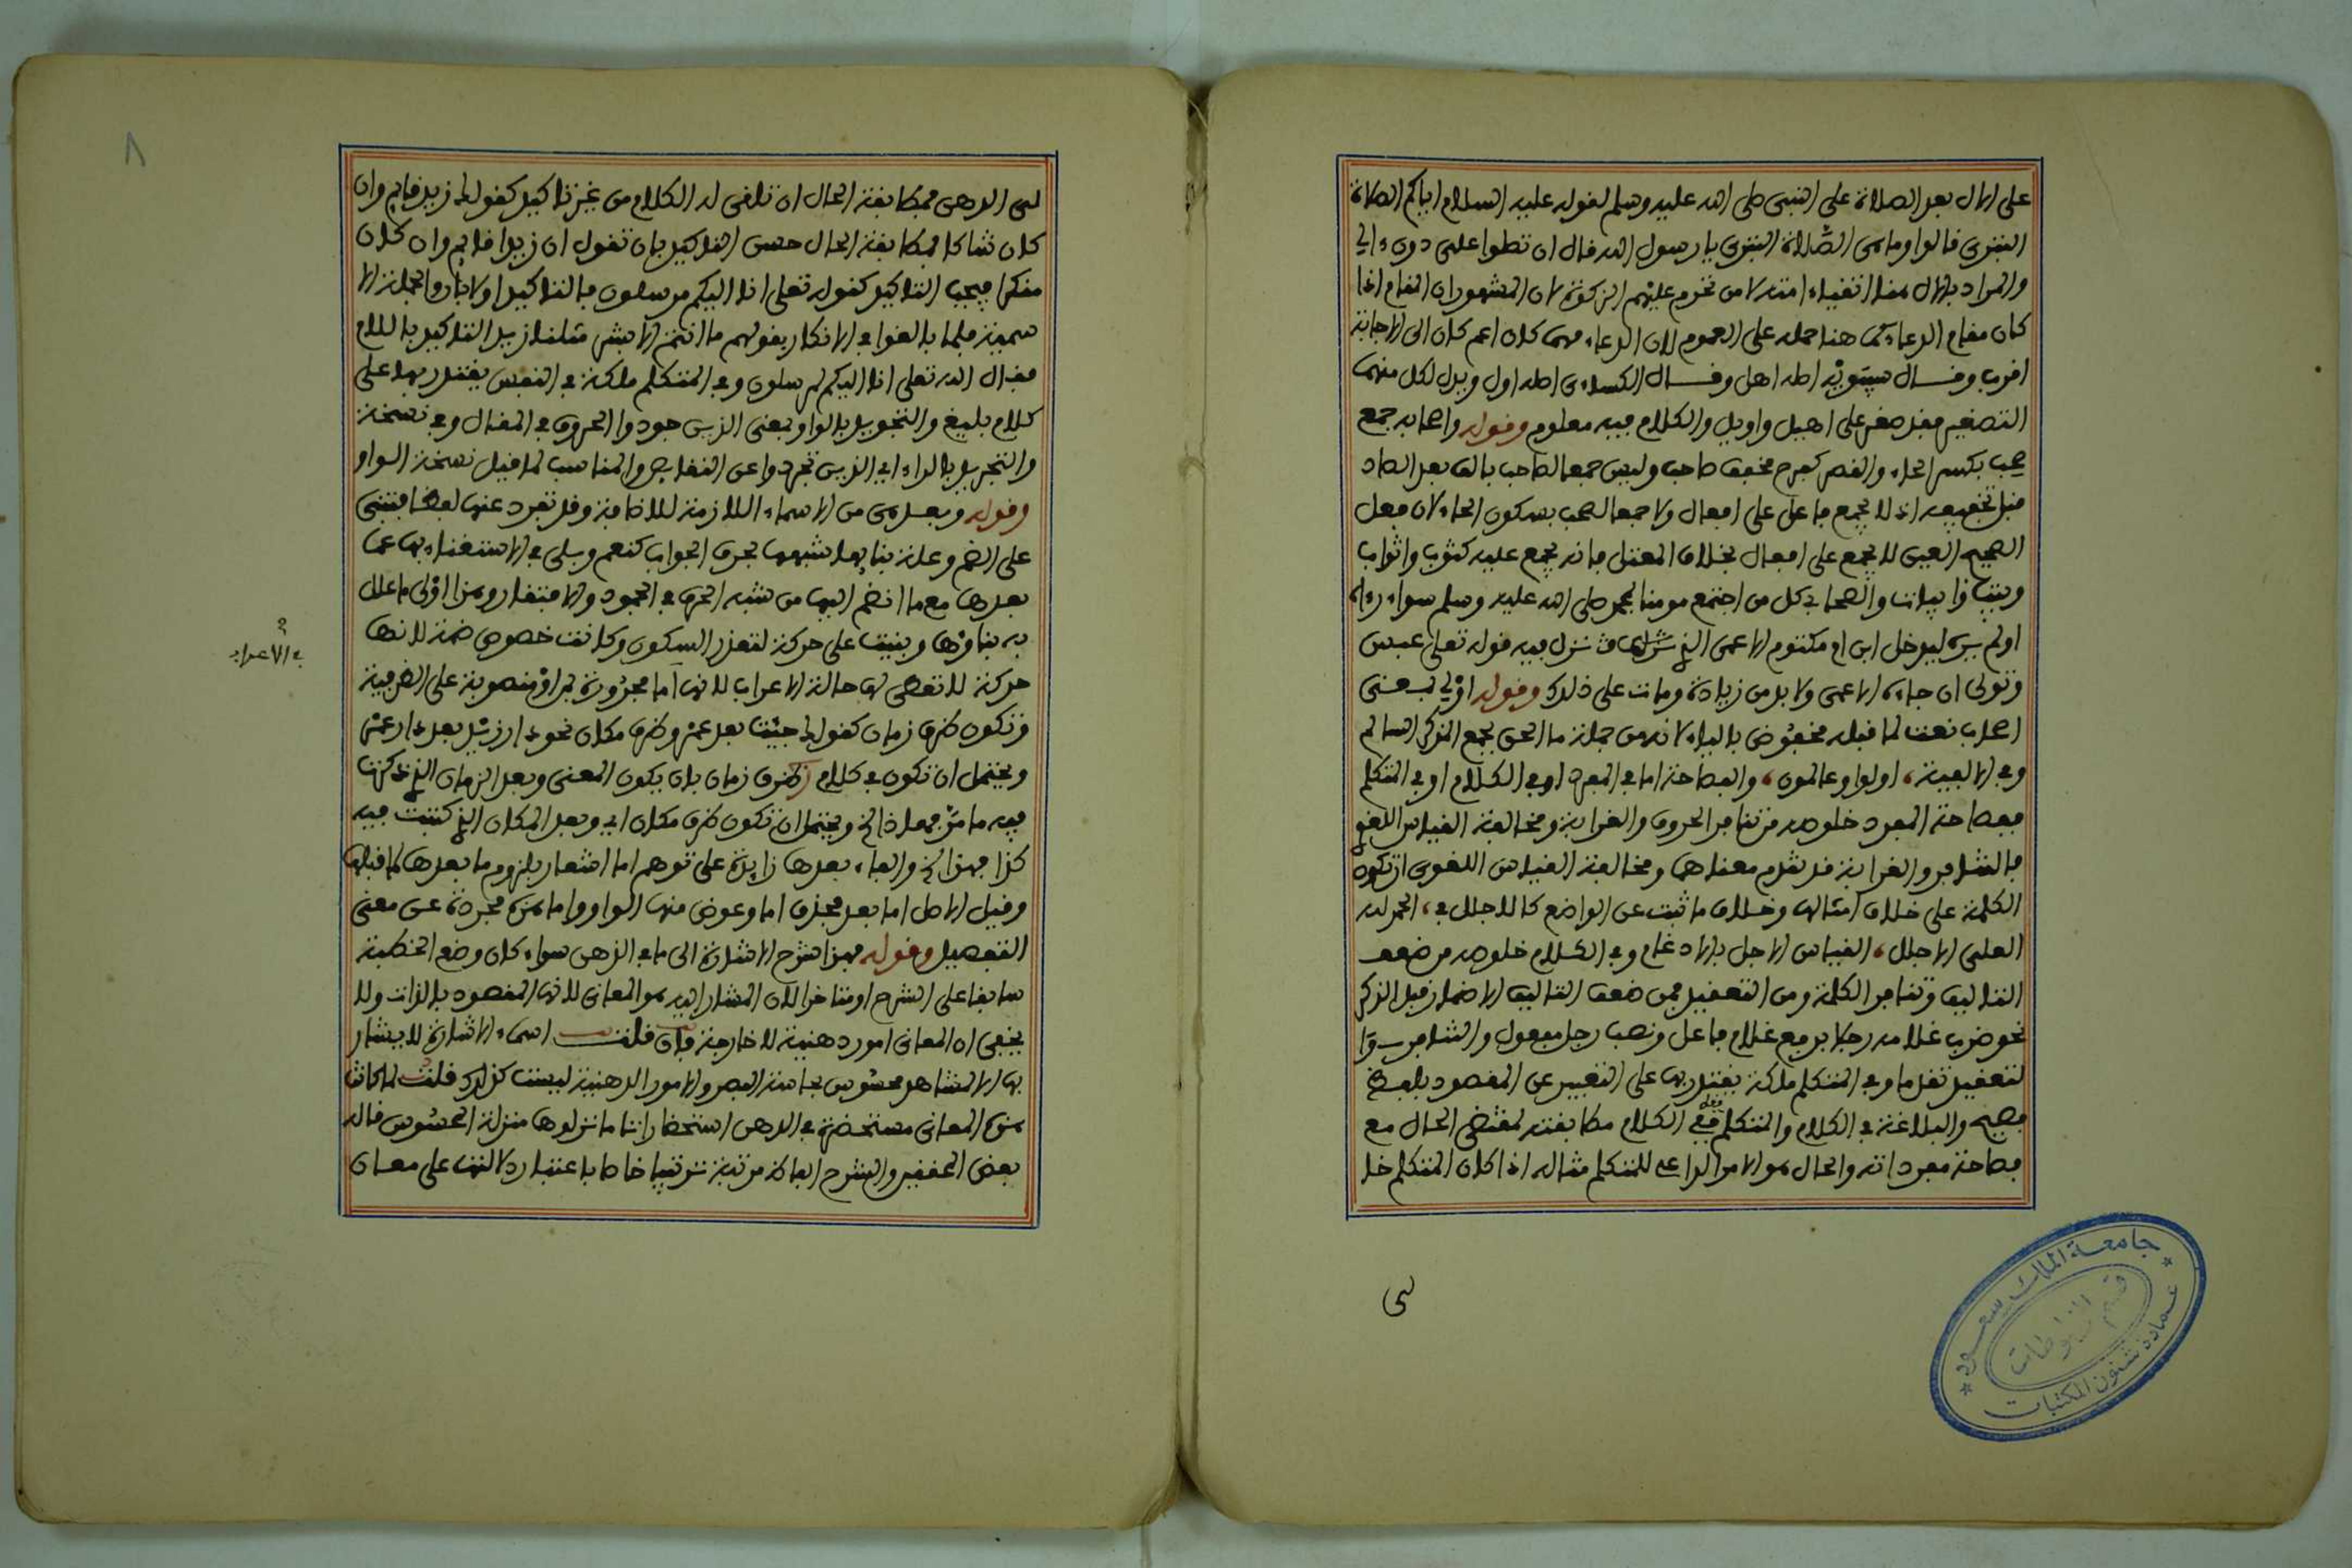 على الآل بعد الصلاة على النبي صلى الله عليه وسلم لقوله عليه السلام اياكم الصلاة
البترى فالوا وما هى الصلاة البترى يا رسول الله فال ان تصلوا على دون ءالي
والمراد بالآل هنا اتفياء امته لا من تحرم عليهم الزكوة لان المشهور ان المفام اذا
كان مفام الدعاء كما هنا حمله على العموم لان الدعاء مهما كان اعم كان الى الاجابة
افرب وفال سيبويه اصله اهل وفال الكساءى اصله اول وبدل لكل منهما
التصغير ففد صغر على اهيل واويل والكلام فيه معلوم وفوله واصحابه جمع
صحب بكسر الحاء والفصر كفرح مخفف صاحب وليس جمعا لصاحب بالف بعد الصاد
فبل تخفيفه اذ لا يجمع فاعل على افعال ولا جمعا لصحب بسكون الحاء لان فعل
الصحيح العين لا يجمع على افعال بخلاف المعتل فانه يجمع عليه كثوب واثواب
وبيت وابيات والصحابي كل من اجتمع مومنا بمحمد صلى الله عليه وسلم سواء رءاه
اولم يره ليدخل ابن ام مكتوم الاعمى الذي نزل فيه فوله تعلى عبس
وتولى ان جاءه الاعمى ولا بد من زيادة ومات على ذلك وفوله اولي بمعنى
اصحاب نعت لما فبله مخفوض بالياء لانه من جملة ما الحق بجمع المذكر السالم
وفى الالفية، اولوا وعالمون، والفصاحة اما في المفرد او في الكلام او في المتكلم
ففصاحة المفرد خلوصه من تنافر الحروف والغرابة ومخالفة الفياس اللغوي
فالتنافر والغرابة فد تفدم معناهما ومخالفة الفياس اللغوى ان تكون
الكلمة على خلاف امثالها وخلاف ما ثبت عن الواضع كالاجلل في، الحمد لله
العلى الاجلل، الفياس الاجل بالادغام وفي الكلام خلوصه من ضعف
التاليف وتنافر الكلمة ومن التعفيد فمن ضعف التاليف الاضمار فبل الذكر
نحو ضرب غلامه رجلا برفع غلام فاعل ونصب رجل مفعول والتنافر
لتعفيد تفدما وفى المتكلم ملكة يفتدر بها على التعبير عن المفصود بلفظ
فصيح والبلاغة في الكلام والمتكلم ففي الكلام مطابفته لمفتضى الحال مع
فصاحة مفرداته والحال هو الامر الداعى للمتكلم مثاله اذا كان المتكلم خا
لى
لى الذهن فمطابفة الحال ان تلفى له الكلام من غير تاكيد كفولك زيد فايم وان
كان شاكا فمطابفة الحال حسن التاكيد بان تفول ان زيدا فايم وان كان
منكرا فيجب التاكيد كفوله تعلى انا اليكم مرسلون فالتاكيد اولا بان والجملة الا
سمية فلما بالغوا في الانكار بفولهم ما انتم الا بشر مثلنا زيد التاكيد باللام
ففال الله تعلى انا اليكم لمرسلون وفي المتكلم ملكة في النفس يفتدر بها على
كلام بليغ والتجويد بالواو بمعنى الذين جودوا الحروف في المفال وفي نسخة
والتجريد بالراء اي الذين تجردوا عن النفايص والمناسب لما فبل نسخة الواو
وفوله وبعد هى من الاسماء اللازمة للاضافة وفد تفرد عنها لفظا فتبنى
على الضم وعلة بنايها شبهها بحرف الجواب كنعم وبلى في الاستغناء بها عما
بعدها مع ما انضم اليها من شبه الحرف في الجمود والافتفار وهذا اولى ما علل
به بناؤها وبنيت على حركة لتعذر السكون وكانت خصوص ضمة لانها
حركة لا تعطى لها حالة الاعراب لانها اما مجرورة بمن او منصوبة على الظرفية
في الاعراب
وتكون ظرف زمان كفولك جيت بعد عمر وظرف مكان نحو دار زيد بعد دار عمر
ويحتمل ان تكون في كلام ظرف زمان بان يكون المعنى وبعد الزمان الذي ذكرت
فيه ما مر فهذا الخ ويحتمل ان تكون ظرف مكان اي وبعد المكان الذي كتبت فيه
كذا فهذا الخ والفاء بعدها زايدة على توهم اما اشعار بلزوم ما بعدها لما فبلها
وفيل الاصل اما بعد فحذف اما وعوض منها الواو واما هذه مجردة عن معنى
التفصيل وفوله فهذا شرح الاشارة الى ما في الذهن سواء كان وضع الخطبة
سابفا على الشرح او متاخرا لان المشار اليه هو المعانى لانها المفصود بالذات ولا
يخفى ان المعانى امور ذهنية لا خارجة فان فلت اسماء الاشارة لا يشار
بها الا لمشاهد محسوس بحاسة البصر والامور الذهنية ليست كذلك فلت لما كانت
هذه المعانى مستحضرة في الذهن استحضارا تاما نزلوها منزلة المحسوس فاله
بعض المحففين والشرح الفاظ مرتبة ترتيبا خاصا باعتبار دلالتها على معان
٨
جامعة الملك سعود
عمادة شئون المكتبات
قسم المخطوطات